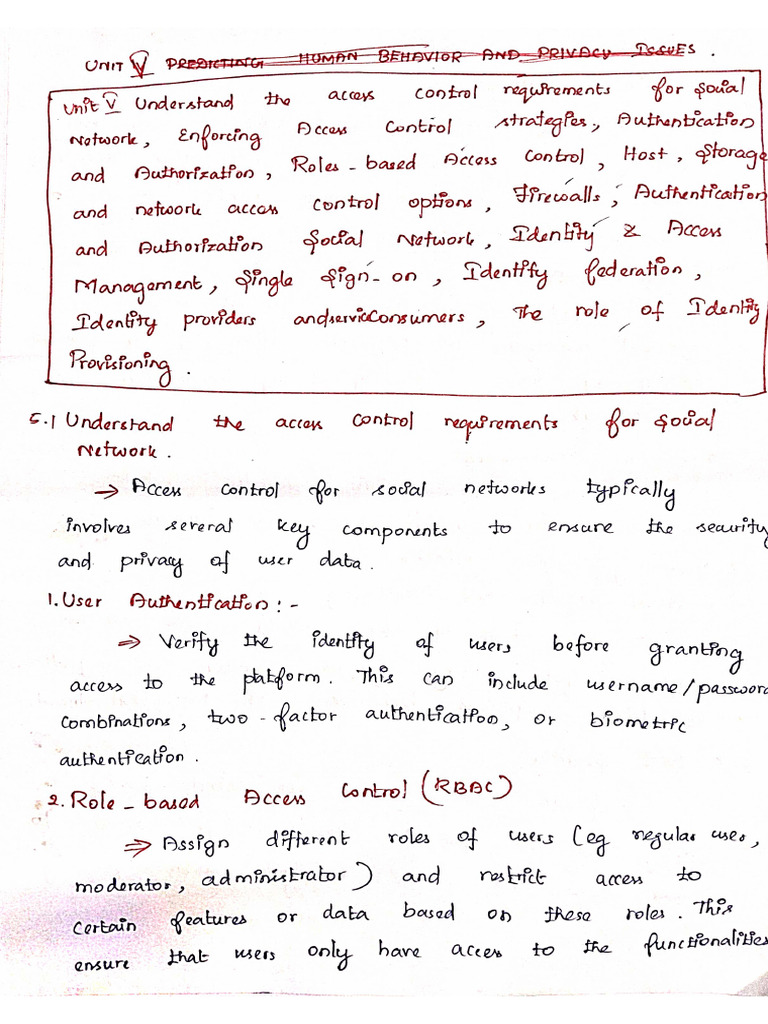 UNIT V PREDICTING HUMAN BEHAVIOR AND PRIVACY ISSUES .
Unit V Understand the access control requirements for Social
Network, Enforcing Access Control strategies, Authentication
and Authorization, Roles-based Access control, Host, Storage
and network access control options, Firewalls, Authentication
and Authorization Social Network, Identity & Access
Management, Single Sign-on, Identify federation,
Identity providers and service Consumers, The role of Identity
Provisioning.
5.1 Understand the access control requirements for Social
Network.
→ Access control for social networks typically
involves several key components to ensure the security
and privacy of user data.
1. User Authentication:-
⇒ Verify the identity of users before granting
access to the platform. This can include username/password
combinations, two-factor authentication, or biometric
authentication.
2. Role-based Access Control (RBAC)
⇒ Assign different roles of users (eg regular user,
moderator, administrator) and restrict access to
certain features or data based on these roles. This
ensure that users only have access to the functionalities